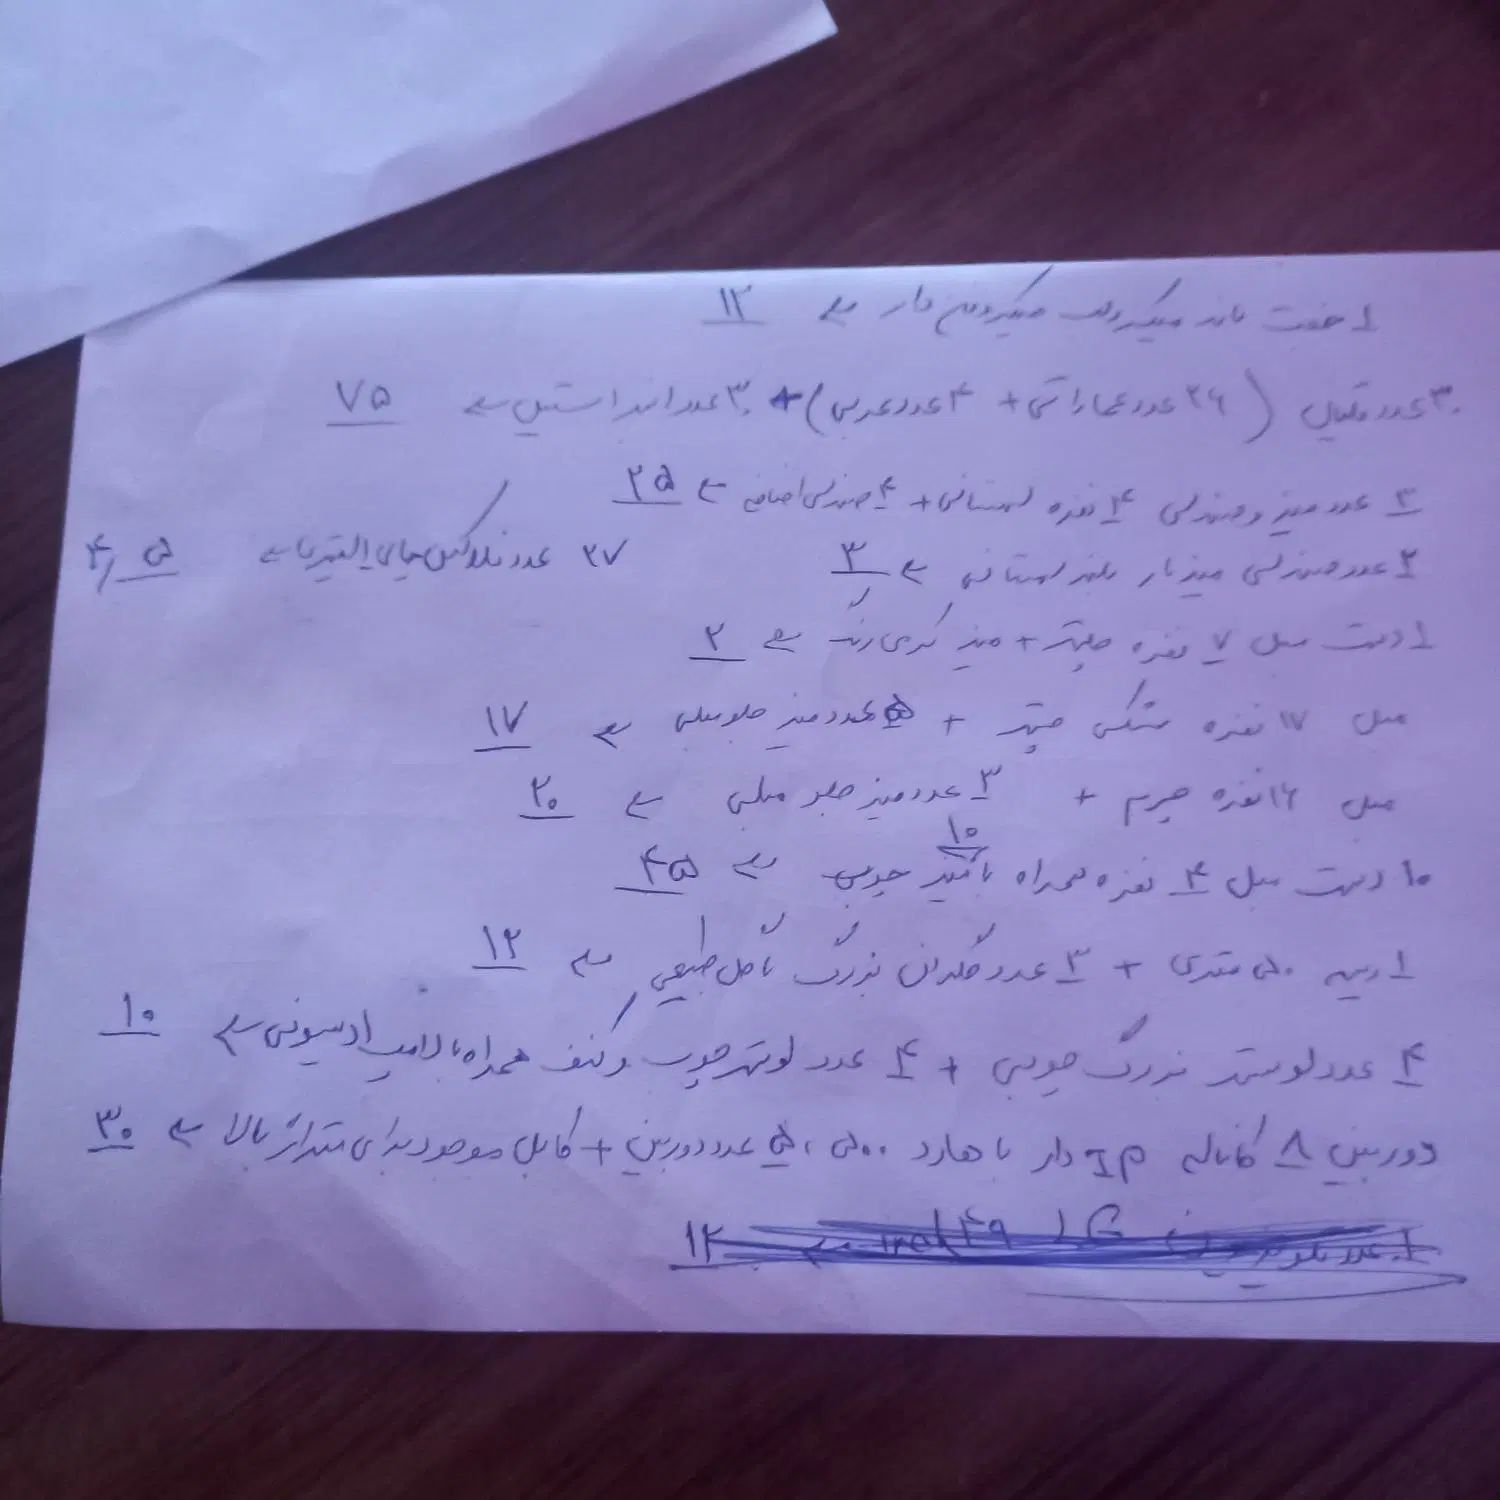 ۱ جفت باند میکروفن دار ← ۱۲
۳۰ عدد قلیان (۲۶ عدد عماراتی + ۴ عدد عربی) + ۳۰ عدد استیل ← ۷۵
۳ عدد میز و صندلی ۴ نفره لهستانی + ۴ صندلی اضافه ← ۲۵
۲ عدد صندلی میز بار بلند لهستانی ← ۳
۲۷ عدد چای ← ۴٫۵
۱ دست مبل ۷ نفره چستر + میز کرمی رنگ ← ۲
مبل ۱۷ نفره مشکی چستر + ۵ عدد میز جلو مبلی ← ۱۷
مبل ۱۶ نفره چرم + ۳ عدد میز جلو مبلی ← ۲۰
۱۰ دست مبل ۴ نفره همراه با ۱۰ میز چوبی ← ۴۵
۱ ریسه ۵۰ متری + ۳ عدد گلدان بزرگ با گل طبیعی ← ۱۲
۴ عدد لوستر بزرگ چوبی + ۴ عدد لوستر چوب و کنف همراه با لامپ ادیسونی ← ۱۰
دوربین ۸ کاناله IP دار با هارد ۵۰۰، ۵ عدد دوربین + کابل موجود برای متراژ بالا ← ۳۰
۱ عدد تلویزیون LG ۴۹ ← ۱۲